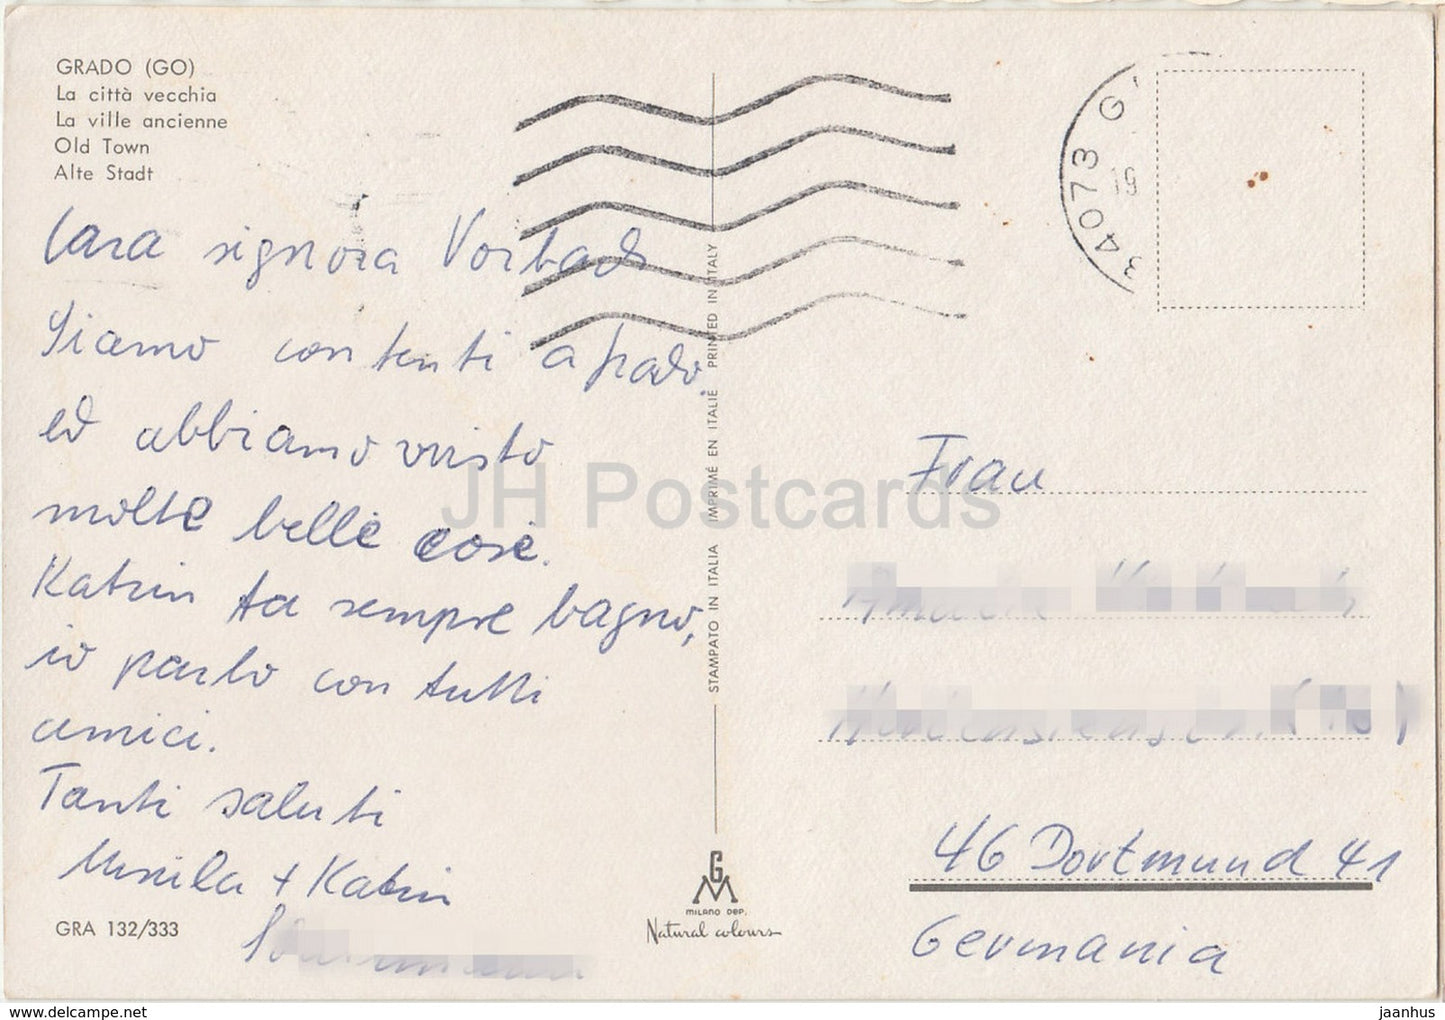 GRADO (GO)
La città vecchia
La ville ancienne
Old Town
Alte Stadt
Cara signora Vorbach
Siamo contenti a grado.
ed abbiamo visto
molte belle cose.
Katrin fa sempre bagno,
io parlo con tutti
amici.
Tanti saluti
+ Katrin
GRA 132/333
STAMPATO IN ITALIA IMPRIMÉ EN ITALIE PRINTED IN ITALY
GM
MILANO DEP.
Natural colours
34073 G
19
Frau
46 Dortmund 41
Germania
JH Postcards
www.delcampe.net
jaanhus